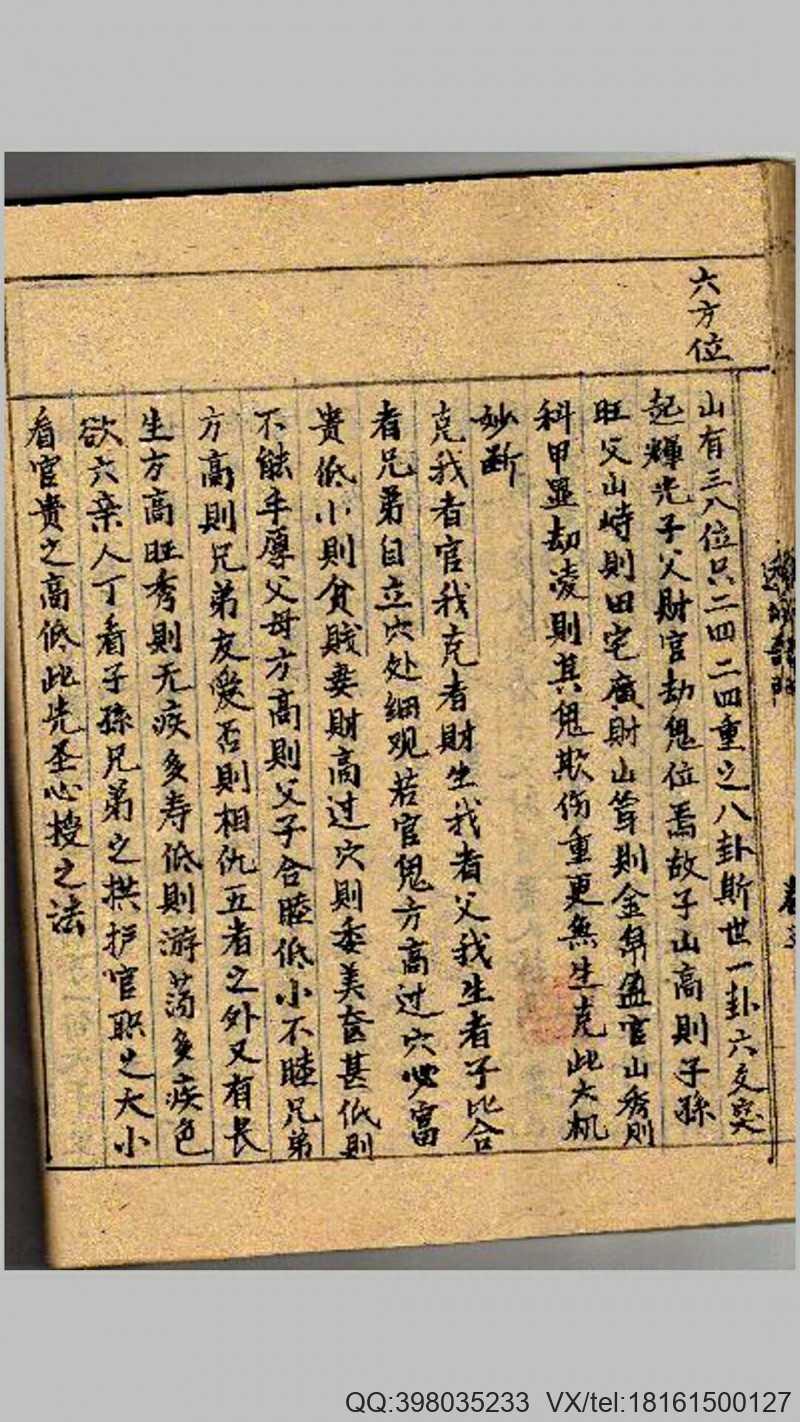 六方位
山有三八位只二四二四重之八卦斯世一卦六爻突
起輝光子父財官劫鬼位焉故子山高則子孫
旺父山峙則田宅廣財山聳則金帛盈官山秀則
科甲显劫凌則其鬼欺伤重更無生克此大机
妙断
克我者官我克者財生我者父我生者子比合
者兄弟自立穴处细观若官鬼方高过穴必富
贵低小則貧賤妻財高过穴則妻美奁甚低則
不能丰厚父母方高則父子合睦低小不睦兄弟
方高則兄弟友愛否則相仇五者之外又有長
生方高旺秀則无疾多寿低則游荡多疾色
欲六亲人丁看子孫兄弟之拱护官职之大小
看官贵之高低此先圣心授之法
QQ:398035233 VX/tel:18161500127